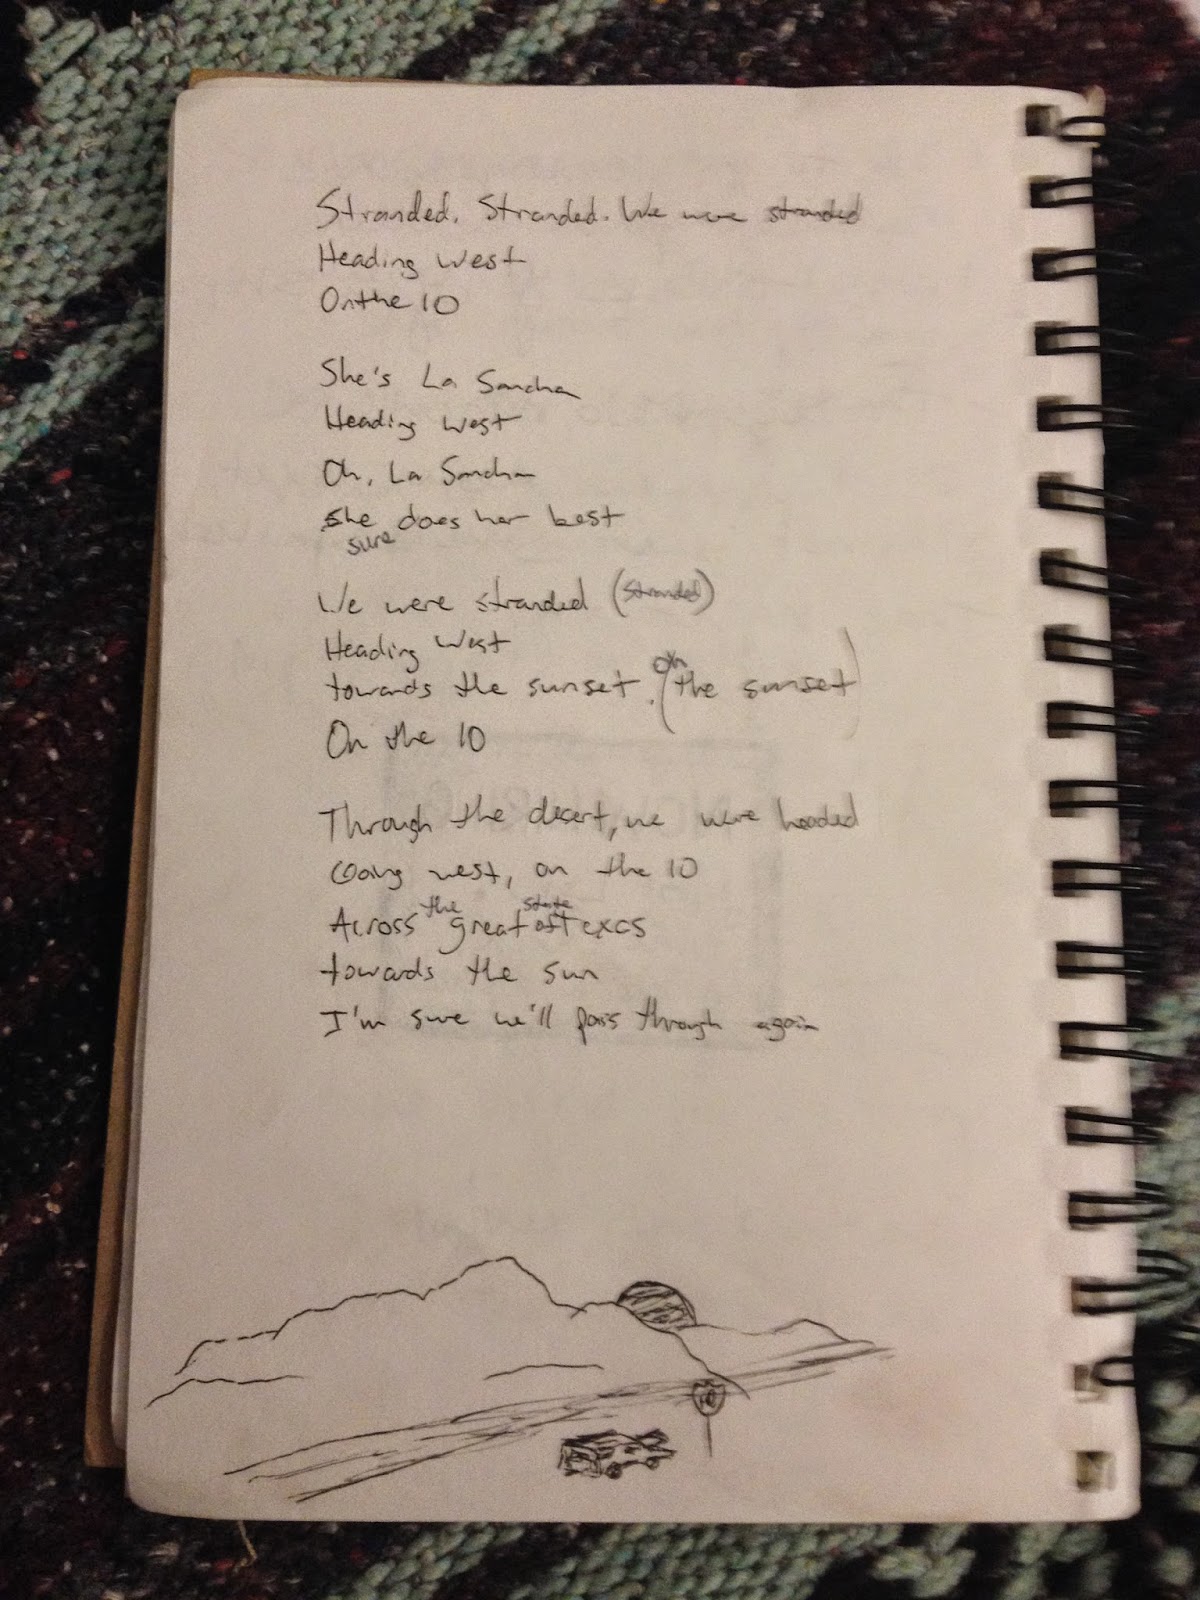 Stranded. Stranded. We were stranded
Heading West
On the 10
She's La Sancha
Heading West
Oh, La Sancha
She sure does her best
We were stranded (stranded)
Heading West
towards the sunset. (Oh the sunset)
On the 10
Through the desert, we were headed
Going west, on the 10
Across the great state of Texas
towards the sun
I'm sure we'll pass through again
10